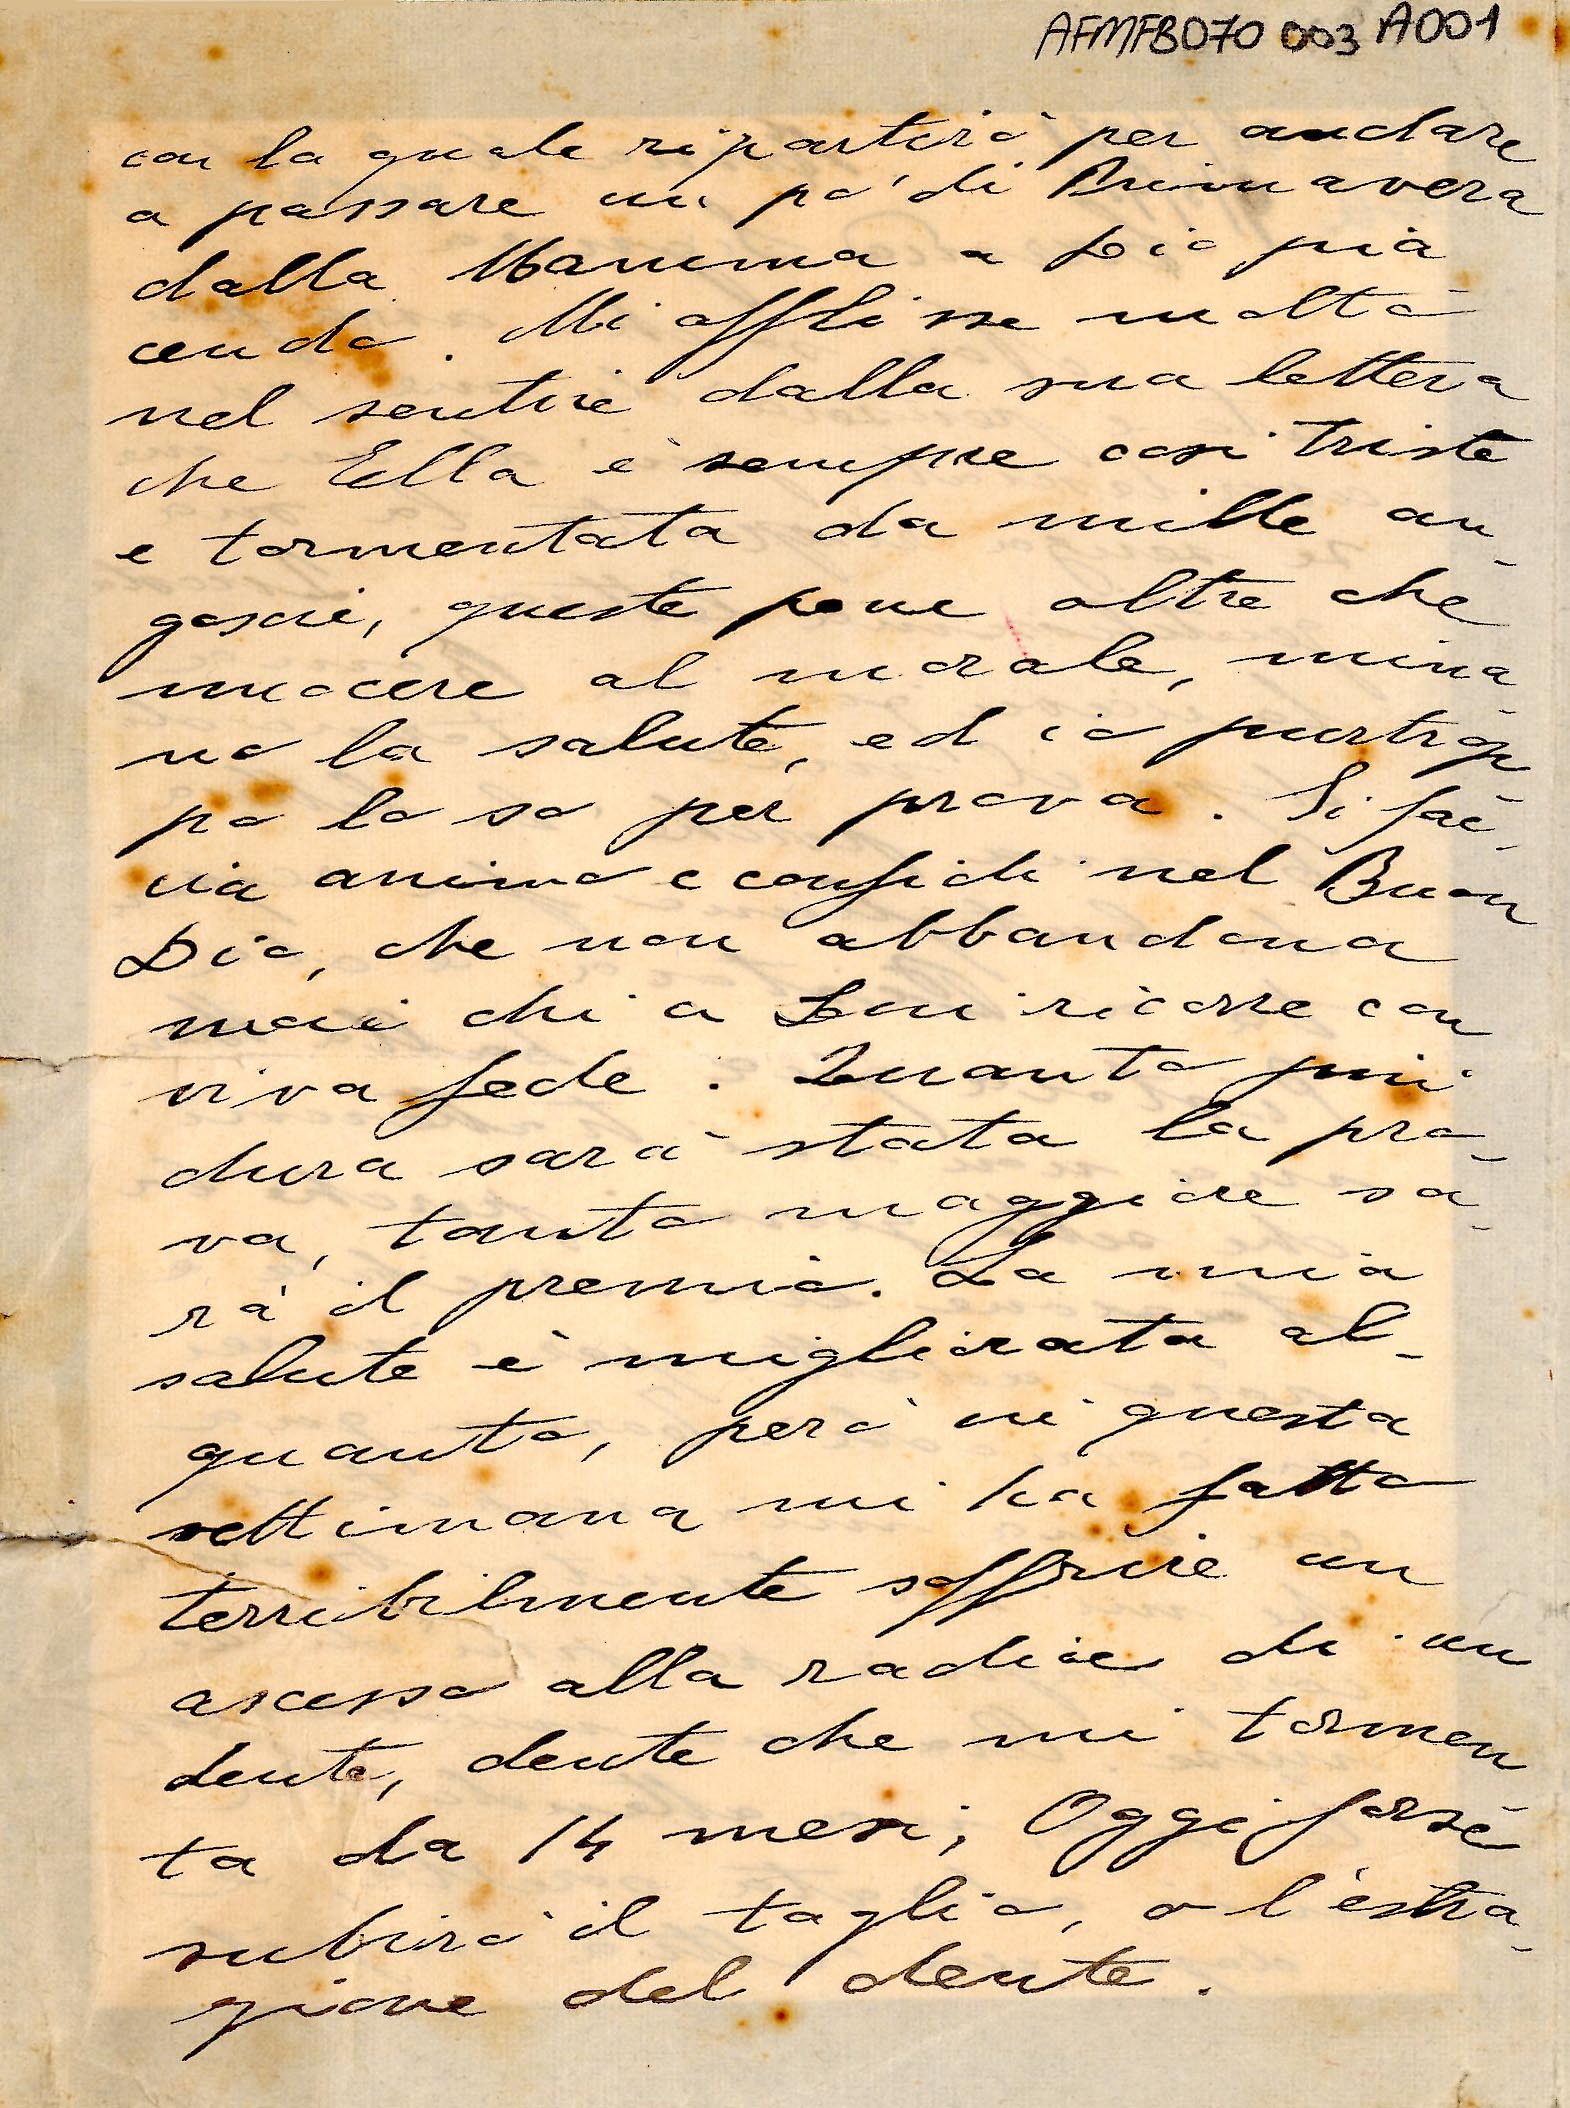 AFMFB070 003 A001
con la quale ripartirò per andare
a passare un pò di Primavera
dalla Mamma a Dio pia
cendo. Mi afflisse molto
nel sentire dalla sua lettera
che Ella è sempre così triste
e tormentata da mille an-
goscie, queste pene oltre che
nuocere al morale, mina-
no la salute, ed io purtrop
po lo so per prova. Si fac-
cia animo e confidi nel Buon
Dio, che non abbandona
mai chi a Lui ricorre con
viva fede. Quanto più
dura sarà stata la pro-
va, tanto maggiore sa-
rà il premio. La mia
salute è migliorata al-
quanto, però in questa
settimana mi ha fatto
terribilmente soffrire un
ascesso alla radice di un
dente, dente che mi tormen
ta da 14 mesi; Oggi forse
subirò il taglio, o l'estra-
zione del dente.